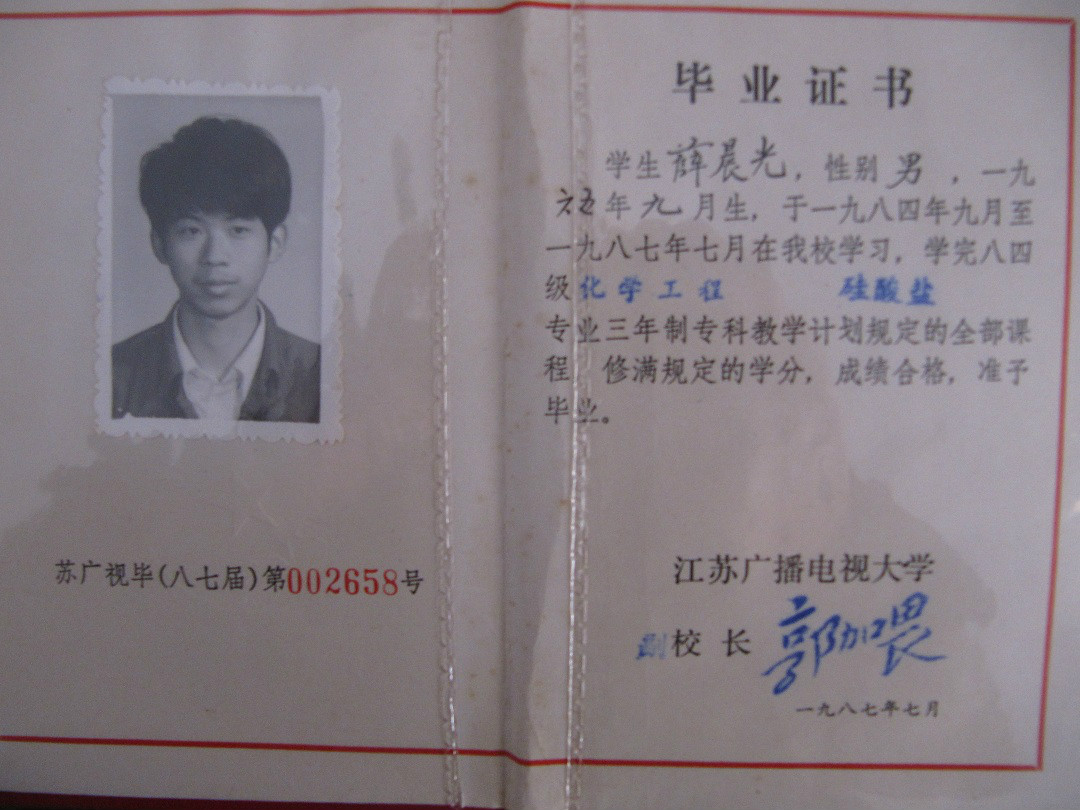 苏广视毕(八七届)第002658号
毕业证书
学生薛晨光，性别男，一九
六五年九月生，于一九八四年九月至
一九八七年七月在我校学习，学完八四
级化学工程 硅酸盐
专业三年制专科教学计划规定的全部课
程，修满规定的学分，成绩合格，准予
毕业。
江苏广播电视大学
副校长 郭加畏
一九八七年七月